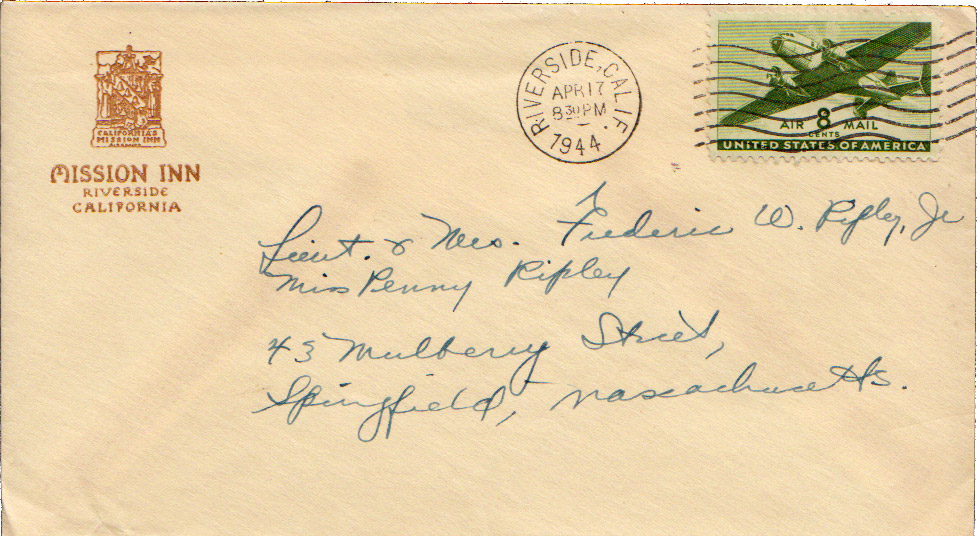 CALIFORNIA'S
MISSION INN
MISSION INN
RIVERSIDE
CALIFORNIA
RIVERSIDE, CALIF.
APR 17
8 30 PM
1944
AIR 8 MAIL
CENTS
UNITED STATES OF AMERICA
Lieut. & Mrs. Frederic W. Ripley, Jr
Miss Penny Ripley
43 Mulberry Street,
Springfield, Massachusetts.